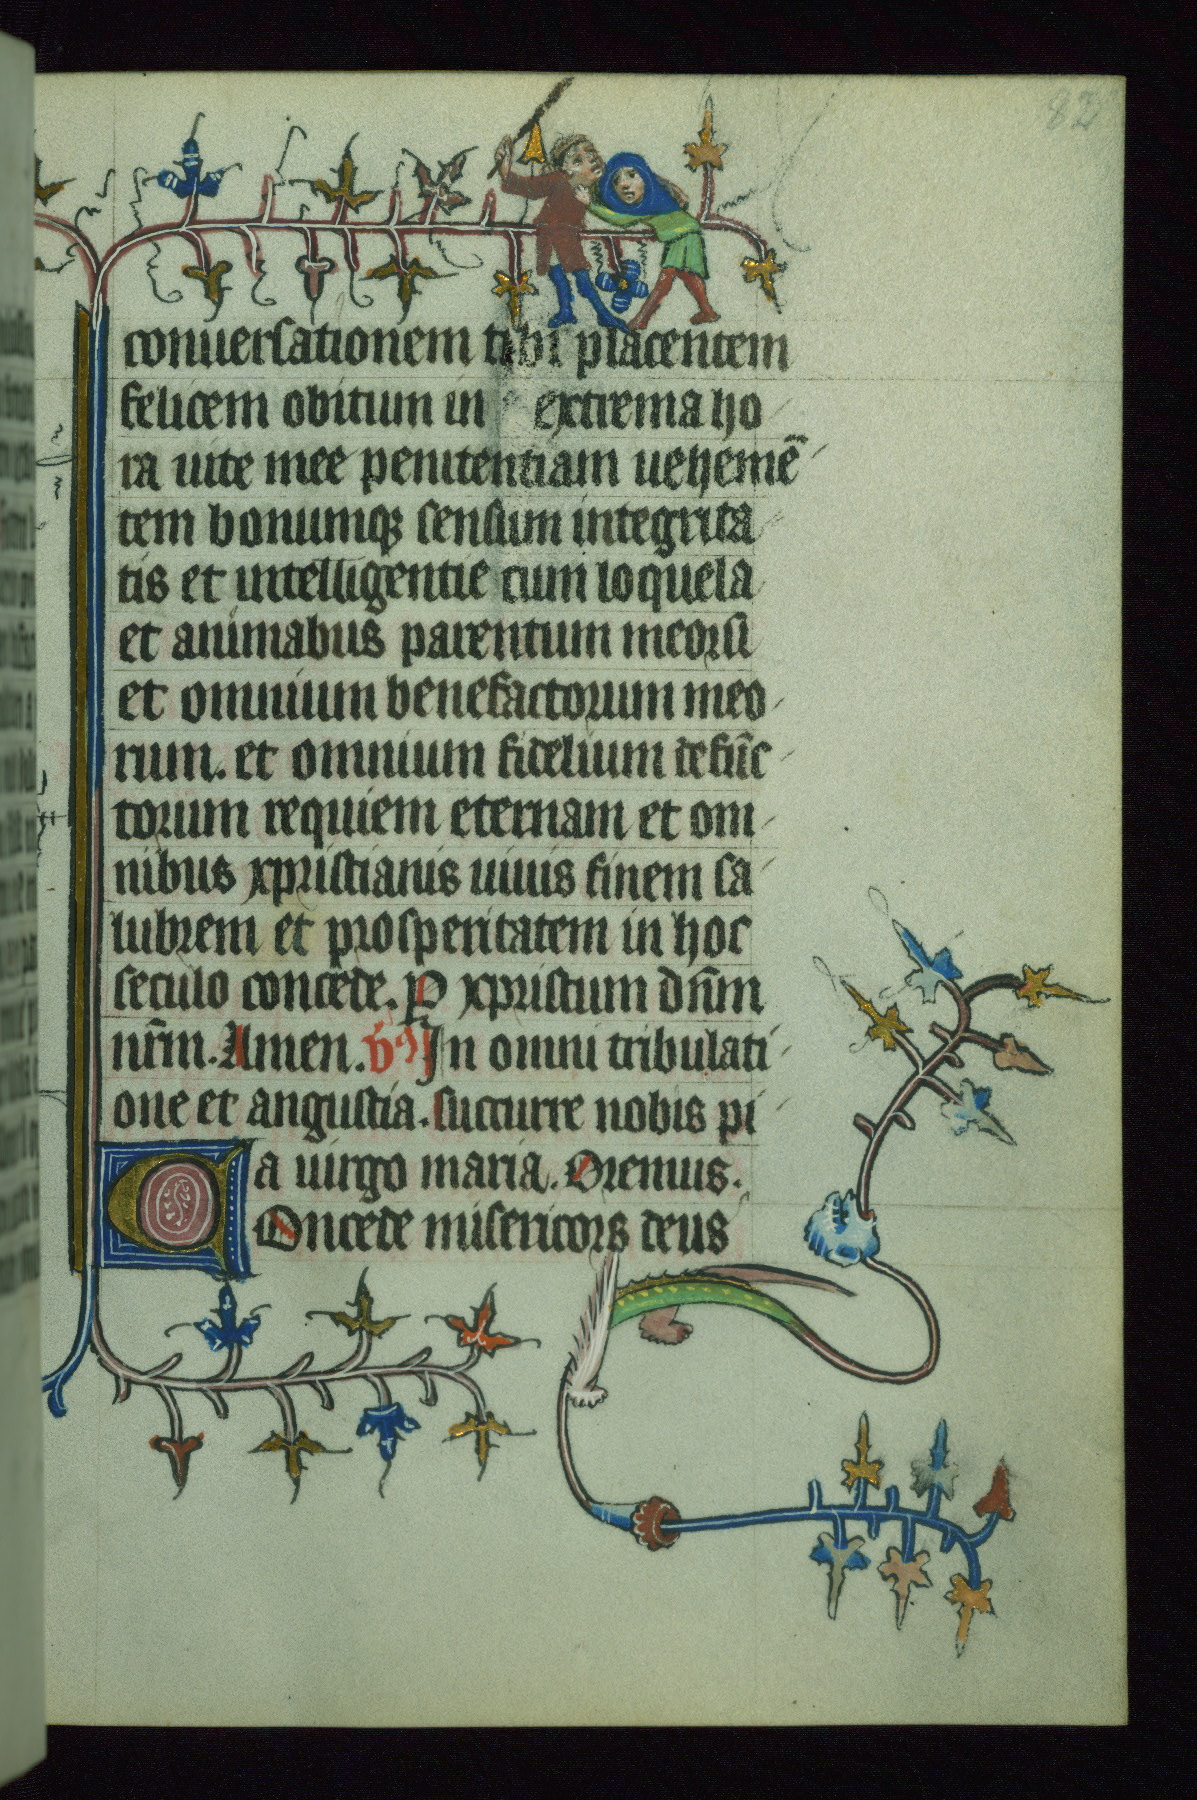 82
conuersationem tibi placentem
felicem obitum in extrema ho
ra uite mee penitentiam uehemē
tem bonumq; sensum integrita
tis et intelligentie cum loquela
et animabus parentum meorū
et omnium benefactorum meo
rum. et omnium fidelium defūc
torum requiem eternam et om
nibus xpristianis uiuis finem sa
lubrem et prosperitatem in hoc
seculo concede. P xpristum dn̄m
nr̄m. Amen. In omni tribulati
one et angustia. succurre nobis pi
a uirgo maria. Oremus.
C Oncede misericors deus